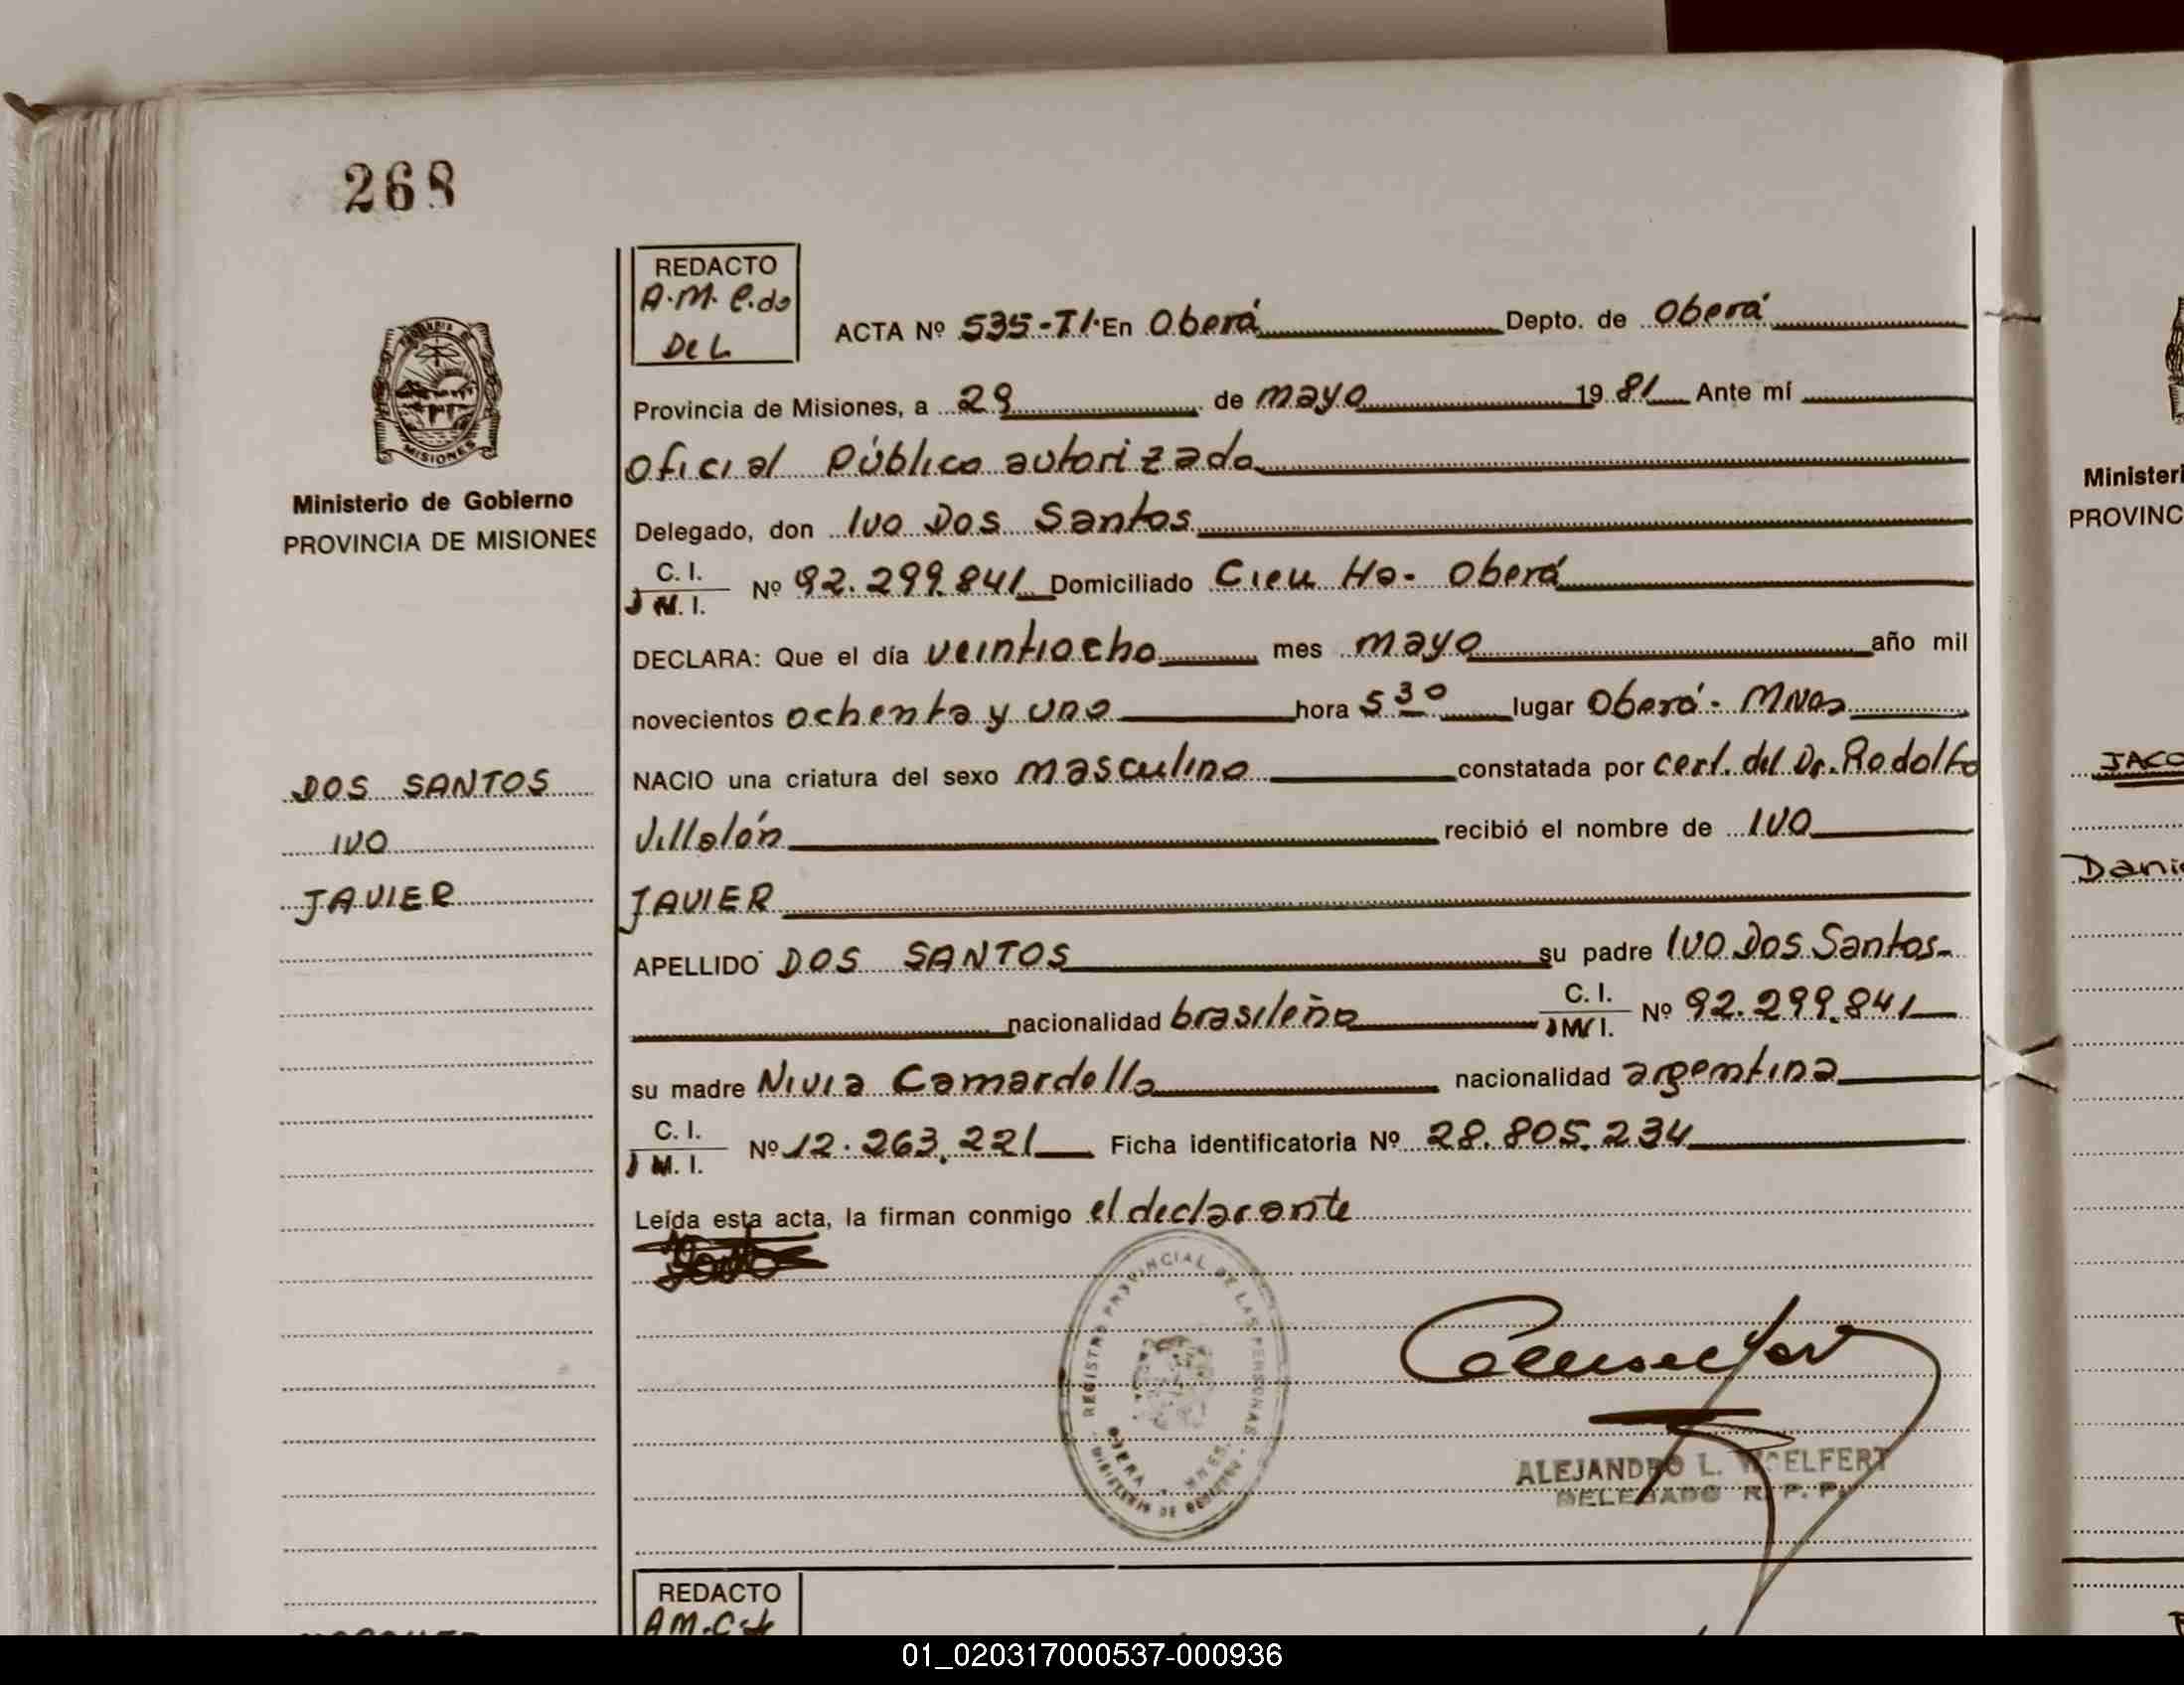 268
REDACTO
A.M. C.do
DEL
ACTA Nº 535-T1. En Oberá Depto. de Oberá
Provincia de Misiones, a 29 de mayo 1981 Ante mí
Oficial Público autorizado
Delegado, don Ivo Dos Santos
C. I.
M. I. Nº 92.299.841 Domiciliado Oberá
DECLARA: Que el día veintiocho mes mayo año mil
novecientos ochenta y uno hora 5 30 lugar Oberá - Mnes
NACIO una criatura del sexo masculino constatada por cert. del Dr. Rodolfo
Villalón recibió el nombre de IVO
JAVIER
APELLIDO DOS SANTOS su padre Ivo Dos Santos-
nacionalidad brasileña C. I.
M. I. Nº 92.299.841
su madre Nivia Camardello nacionalidad argentina
C. I.
M. I. Nº 12.263.221 Ficha identificatoria Nº 28.805.234
Leída esta acta, la firman conmigo el declarante
MISIONES
Ministerio de Gobierno
PROVINCIA DE MISIONES
DOS SANTOS
IVO
JAVIER
REGISTRO PROVINCIAL DE LAS PERSONAS
MINISTERIO DE GOBIERNO
OBERA - MNES.
ALEJANDRO L. WOELFERT
DELEGADO R. P. P.
REDACTO
Ministeri
PROVINC
JACO
Dani
01_020317000537-000936